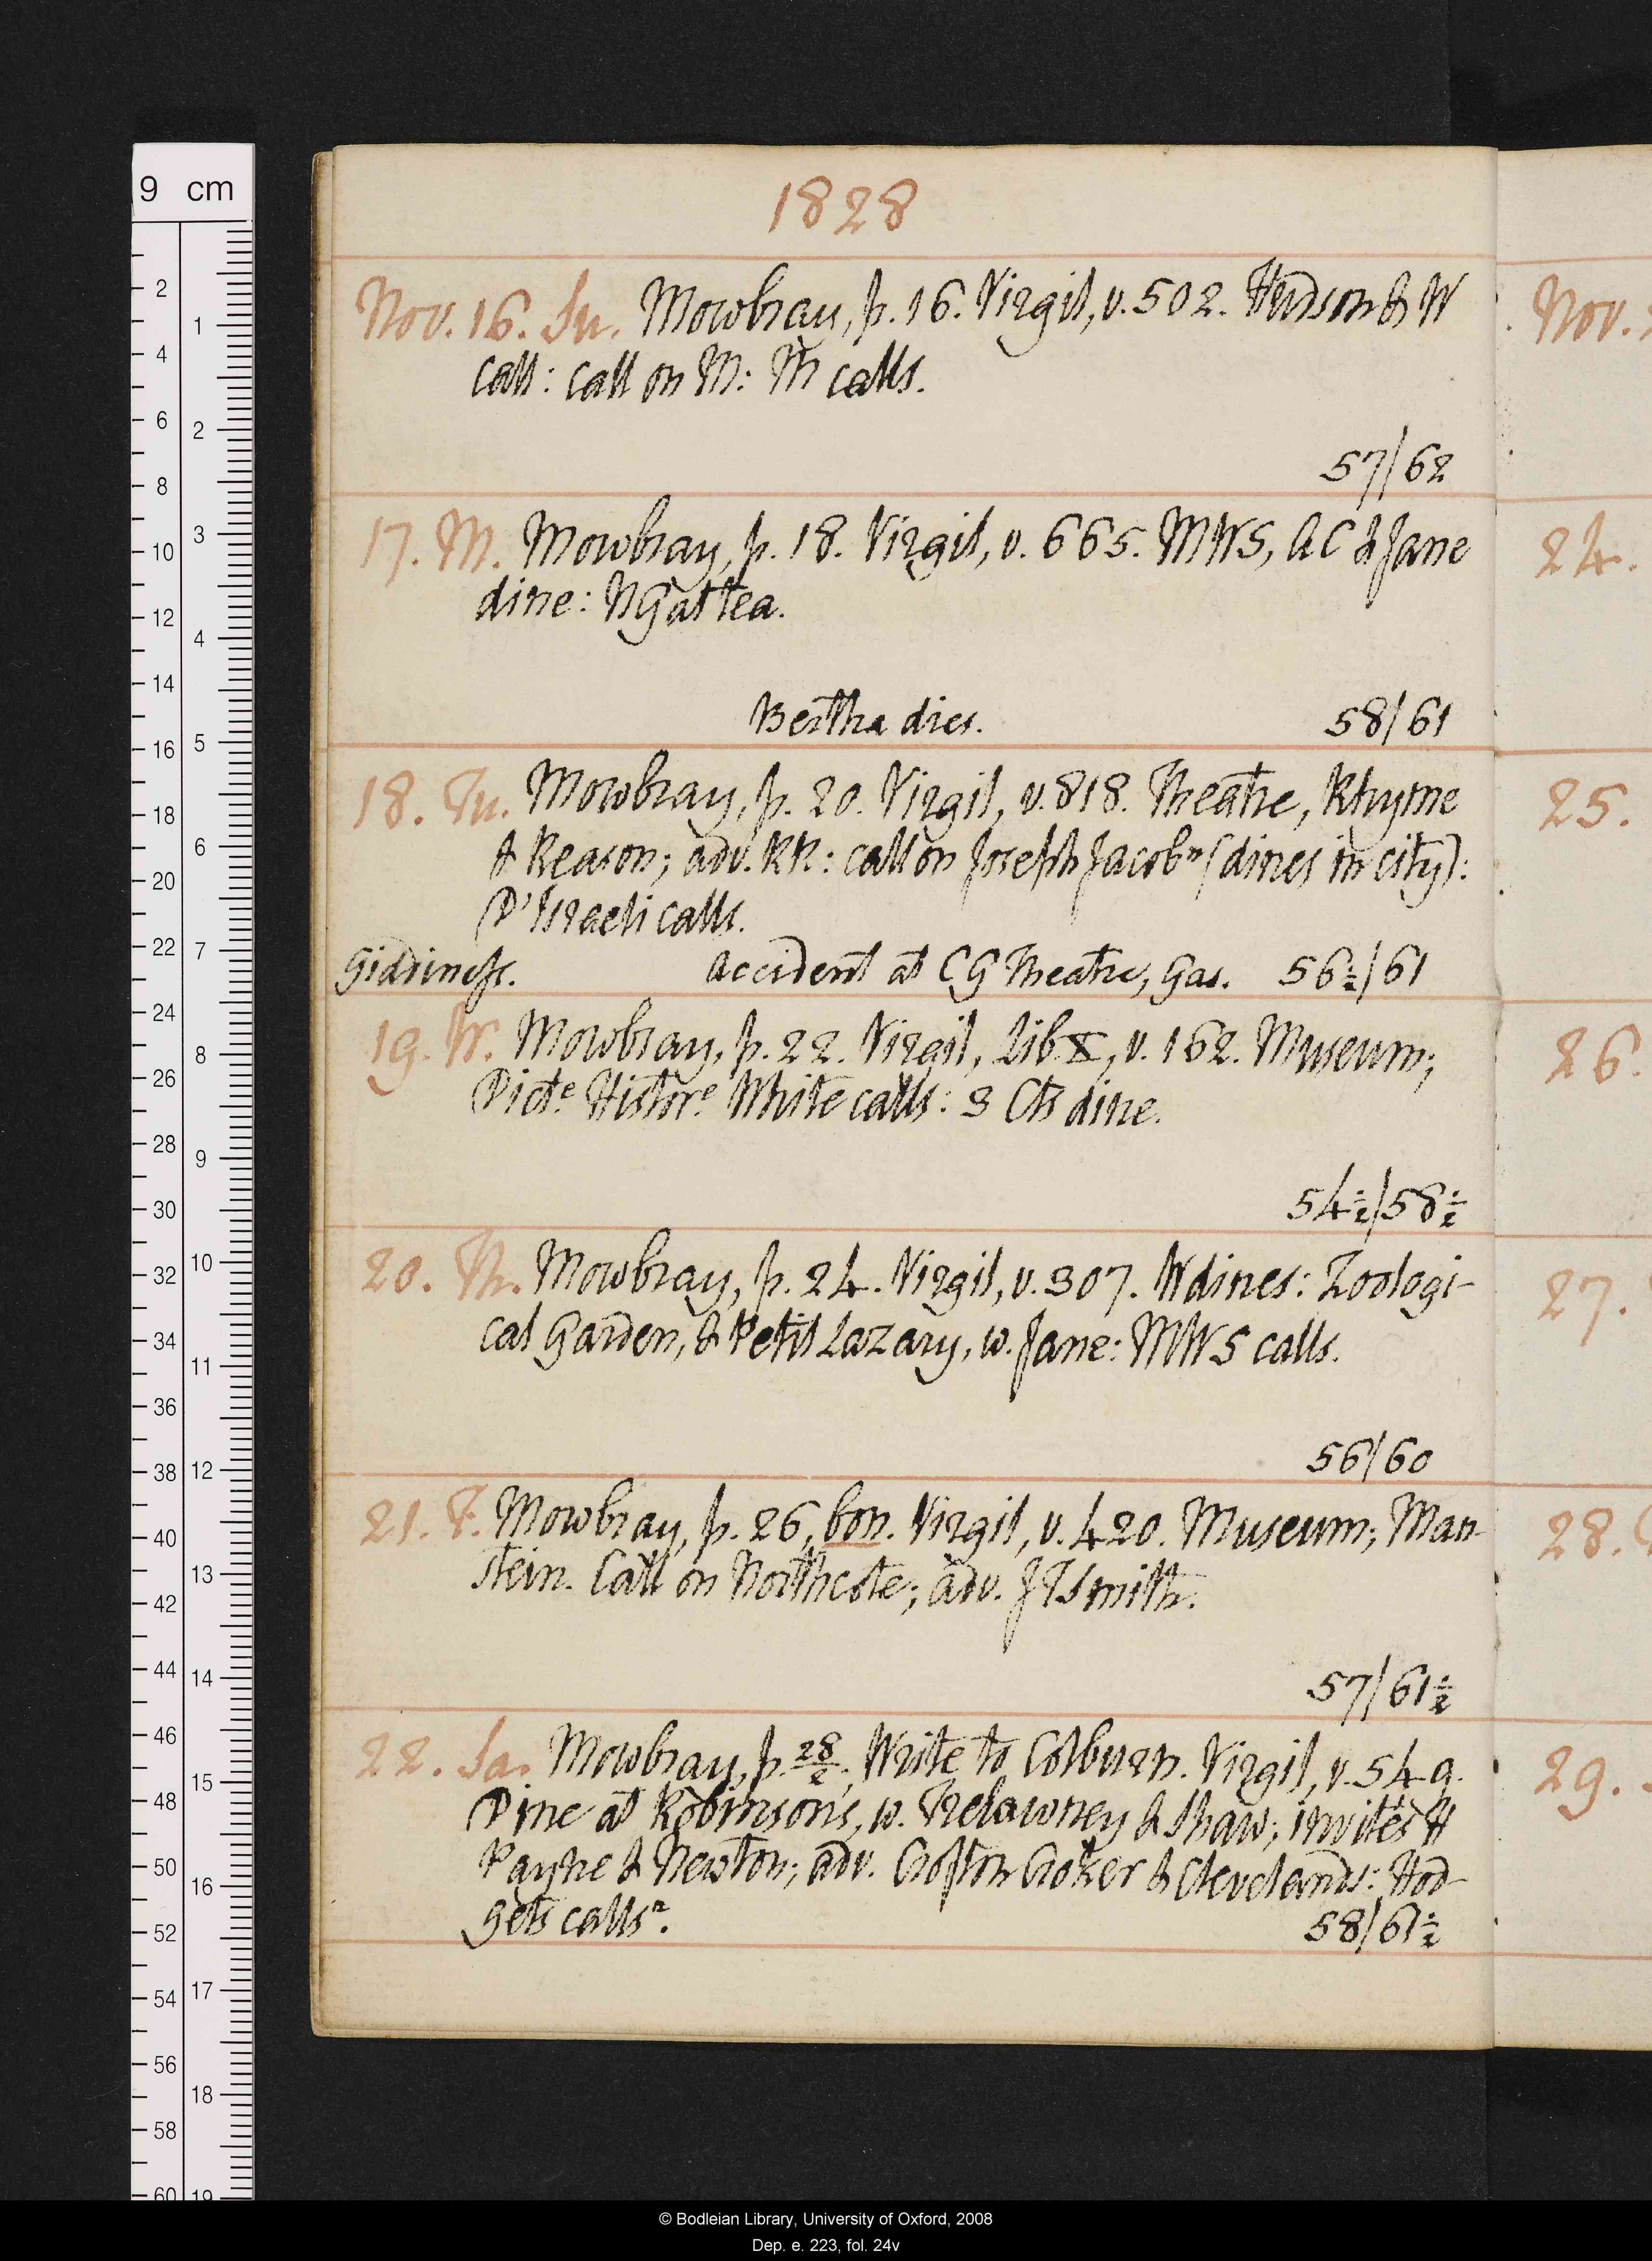 1828
Nov. 16. Su. Mowbray, p. 16. Virgil, v. 502. Hudson & W
call: call on M: Th calls.
57/62
17. M. Mowbray, p. 18. Virgil, v. 665. MWS, AC & Jane
dine: NG at tea.
Bertha dies. 58/61
18. Tu. Mowbray, p. 20. Virgil, v. 818. Theatre, Rhyme
& Reason; adv. RR: call on Joseph Jacobⁿ (dines in city):
D'Israeli calls.
Giddiness. Accident at CG Theatre, Gas. 56½/61
19. W. Mowbray, p. 22. Virgil, Lib. X, v. 162. Museum;
Dictᵉ Historᵉ White calls: 3 Cts dine.
54½/58½
20. Th. Mowbray, p. 24. Virgil, v. 307. W dines: Zoologi-
cal Garden, & Petit Lazary, w. Jane: MWS calls.
56/60
21. F. Mowbray, p. 26, bon. Virgil, v. 420. Museum; Man-
stein. Call on Northcote; adv. JTSmith.
57/61½
22. Sa. Mowbray, p. 28/2. Write to Colburn. Virgil, v. 549.
Dine at Robinson's, w. Trelawney & Shaw; invités H
Payne & Newton; adv. Crofton Croker & Clevelands: Hod-
gets callsⁿ.
58/61½
Nov.
24.
25.
26.
27.
28.
29.
9 cm
2
4
6
8
10
12
14
16
18
20
22
24
26
28
30
32
34
36
38
40
42
44
46
48
50
52
54
56
58
60
1
2
3
4
5
6
7
8
9
10
11
12
13
14
15
16
17
18
19
© Bodleian Library, University of Oxford, 2008
Dep. e. 223, fol. 24v